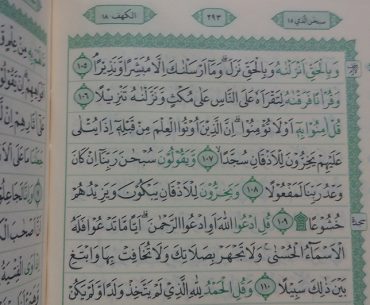 سبحن الذي ١٥
٢٩٣
الكهف ١٨
وَبِالْحَقِّ أَنْزَلْنٰهُ وَبِالْحَقِّ نَزَلَ ۗ وَمَا أَرْسَلْنٰكَ إِلَّا مُبَشِّرًا وَنَذِيرًا ۘ ١٠٥
وَقُرْاٰنًا فَرَقْنٰهُ لِتَقْرَأَهُ عَلَى النَّاسِ عَلٰى مُكْثٍ وَنَزَّلْنٰهُ تَنْزِيلًا ١٠٦
قُلْ اٰمِنُوا بِهِ أَوْ لَا تُؤْمِنُوا ۗ إِنَّ الَّذِينَ أُوتُوا الْعِلْمَ مِنْ قَبْلِهِ إِذَا يُتْلٰى
عَلَيْهِمْ يَخِرُّونَ لِلْأَذْقَانِ سُجَّدًا ۙ ١٠٧ وَيَقُولُونَ سُبْحٰنَ رَبِّنَا إِنْ كَانَ
وَعْدُ رَبِّنَا لَمَفْعُولًا ١٠٨ وَيَخِرُّونَ لِلْأَذْقَانِ يَبْكُونَ وَيَزِيدُهُمْ
خُشُوعًا ۩ ١٠٩ قُلِ ادْعُوا اللّٰهَ أَوِ ادْعُوا الرَّحْمٰنَ ۗ أَيًّا مَا تَدْعُوا فَلَهُ
الْأَسْمَاءُ الْحُسْنٰى ۚ وَلَا تَجْهَرْ بِصَلَاتِكَ وَلَا تُخَافِتْ بِهَا وَابْتَغِ
بَيْنَ ذٰلِكَ سَبِيلًا ١١٠ وَقُلِ الْحَمْدُ لِلّٰهِ الَّذِي لَمْ يَتَّخِذْ وَلَدًا وَلَمْ يَكُنْ